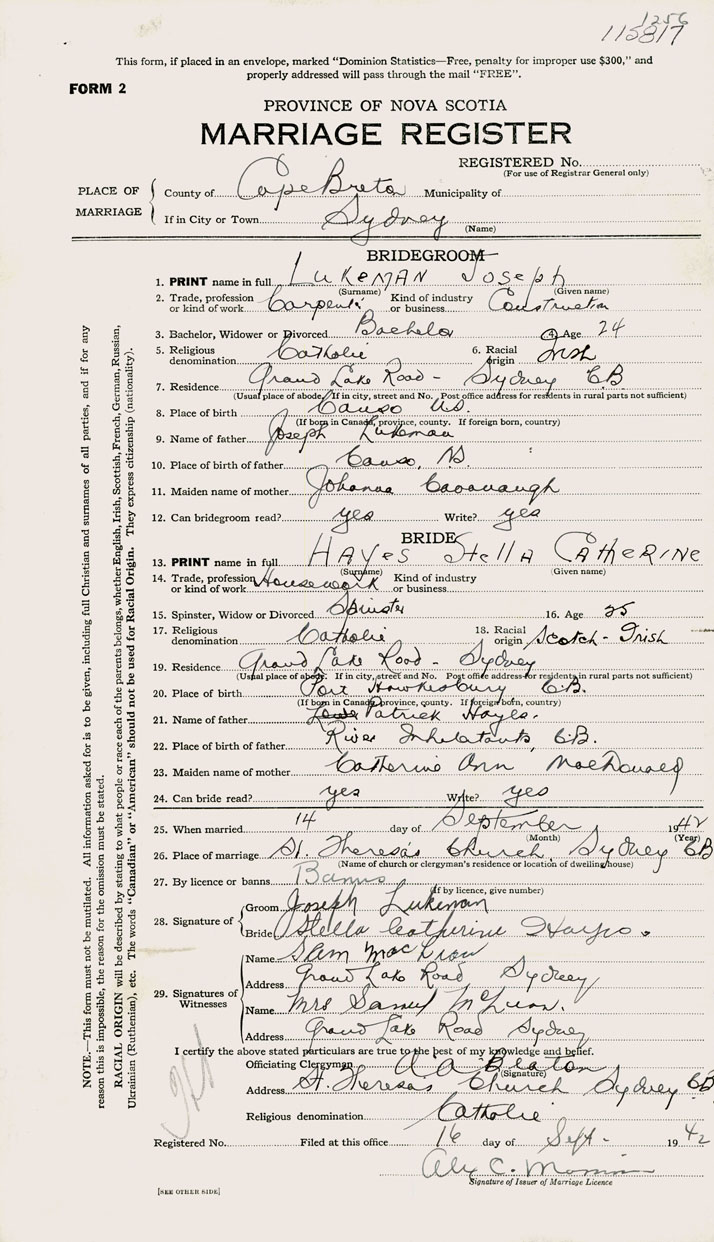 1256
115817
This form, if placed in an envelope, marked "Dominion Statistics—Free, penalty for improper use $300," and
properly addressed will pass through the mail "FREE".
FORM 2
PROVINCE OF NOVA SCOTIA
MARRIAGE REGISTER
REGISTERED No.
(For use of Registrar General only)
PLACE OF MARRIAGE
County of Cape Breton Municipality of
If in City or Town Sydney
(Name)
BRIDEGROOM
1. PRINT name in full LUKEMAN Joseph
(Surname) (Given name)
2. Trade, profession or kind of work Carpenter Kind of industry or business Construction
3. Bachelor, Widower or Divorced Bachelor 4 Age 24
5. Religious denomination Catholic 6. Racial origin Irish
7. Residence Grand Lake Road - Sydney C.B
(Usual place of abode. If in city, street and No. Post office address for residents in rural parts not sufficient)
8. Place of birth Canso N.S.
(If born in Canada, province, county. If foreign born, country)
9. Name of father Joseph Lukeman
10. Place of birth of father Canso, N.S.
11. Maiden name of mother Johanna Cavavaugh
12. Can bridegroom read? yes Write? yes
BRIDE
13. PRINT name in full HAYES Stella CATHERINE
(Surname) (Given name)
14. Trade, profession or kind of work Housework Kind of industry or business
15. Spinster, Widow or Divorced Spinster 16. Age 25
17. Religious denomination Catholic 18. Racial origin Scotch - Irish
19. Residence Grand Lake Road - Sydney
(Usual place of abode. If in city, street and No. Post office address for residents in rural parts not sufficient)
20. Place of birth Port Hawkesbury C.B.
(If born in Canada province, county. If foreign born, country)
21. Name of father Patrick Hayes.
22. Place of birth of father River Inhabitants, C.B.
23. Maiden name of mother Catherine Ann MacDonald
24. Can bride read? yes Write? yes
25. When married 14 day of September 1942
(Month) (Year)
26. Place of marriage St. Theresa's Church, Sydney CB
(Name of church or clergyman's residence or location of dwelling house)
27. By licence or banns Banns
(If by licence, give number)
28. Signature of
Groom Joseph Lukeman
Bride Stella Catherine Hayes.
29. Signatures of Witnesses
Name Sam MacLean
Address Grand Lake Road Sydney
Name Mrs Samuel McLean.
Address Grand Lake Road Sydney
I certify the above stated particulars are true to the best of my knowledge and belief.
Officiating Clergyman A A Beaton
(Signature)
Address St. Theresa's Church Sydney CB
Religious denomination Catholic
Registered No. Filed at this office 16 day of Sept - 1942
Alex C. 
Signature of Issuer of Marriage Licence
[SEE OTHER SIDE]
NOTE.—This form must not be mutilated. All information asked for is to be given, including full Christian and surnames of all parties, and if for any
reason this is impossible, the reason for the omission must be stated.
RACIAL ORIGIN will be described by stating to what people or race each of the parents belongs, whether English, Irish, Scottish, French, German, Russian,
Ukrainian (Ruthenian), etc. The words "Canadian" or "American" should not be used for Racial Origin. They express citizenship (nationality).